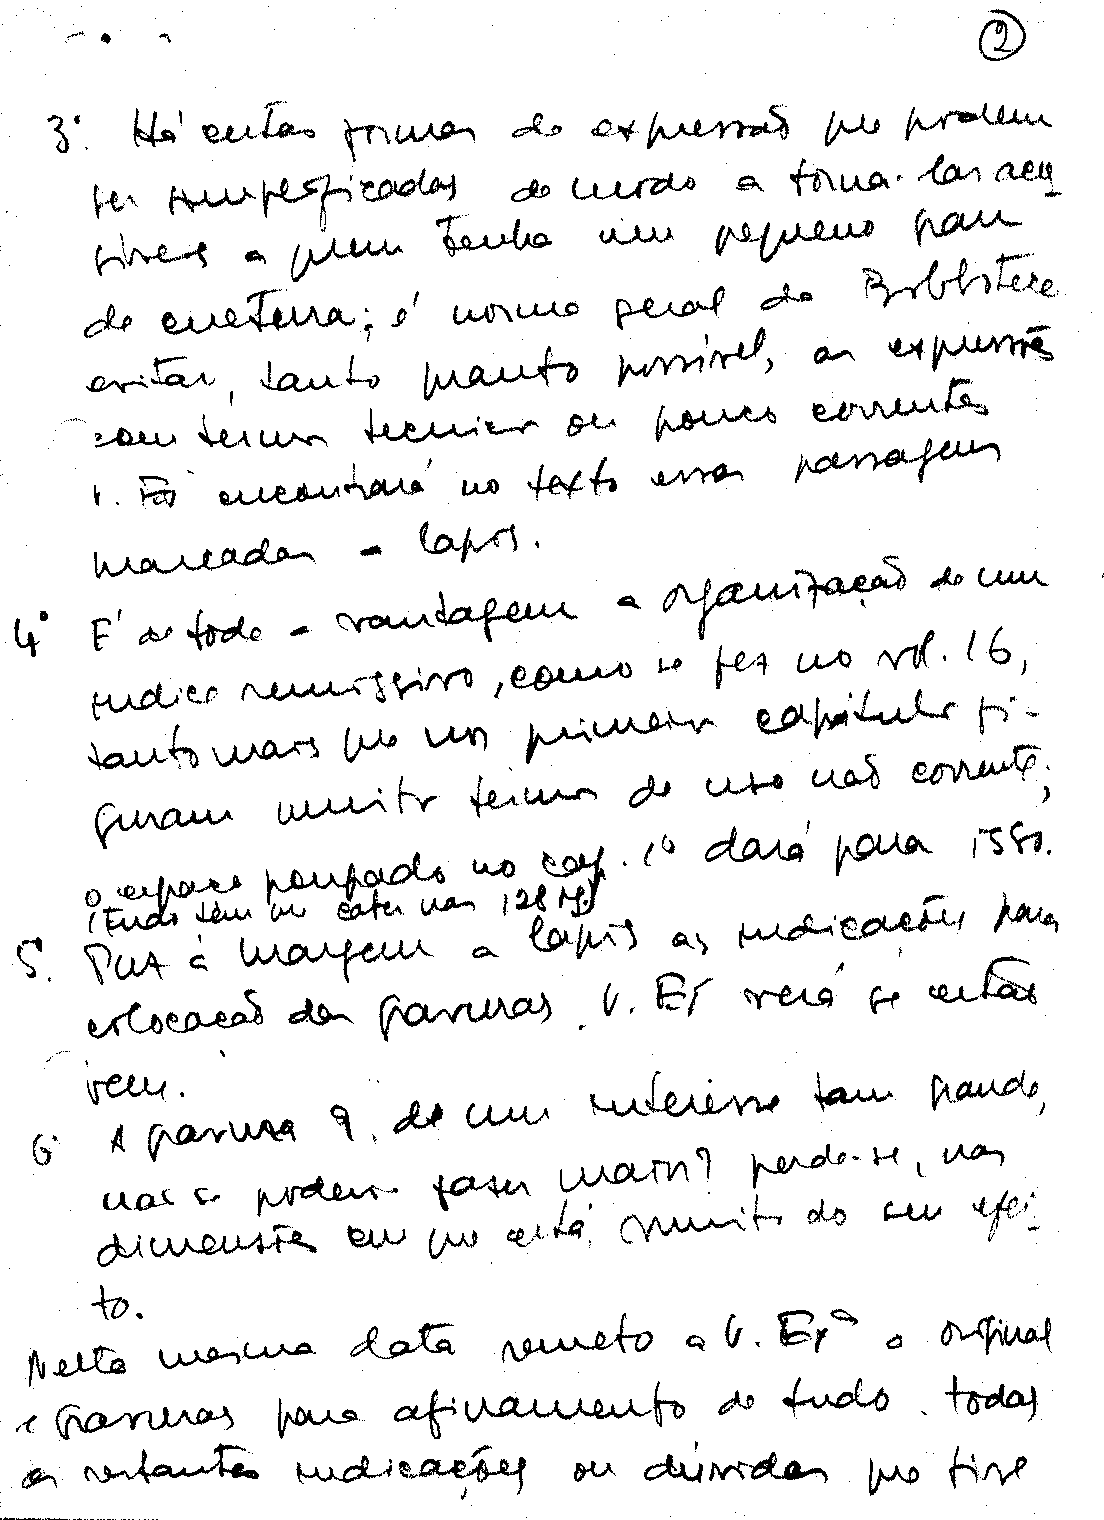 2
3º Há certas formas de expressão que podem
ser simplificadas de modo a torná-las aces
síveis a quem tenha um pequeno grau
de cultura; é norma geral da Biblioteca
evitar, tanto quanto possível, as expressões
com termos tecnicos ou pouco correntes
V. Exª encontrará no texto essas passagens
marcadas a lapis.
4º É de toda a vantagem a organização de um
indice remissivo, como se fez no vol. 16,
tanto mais que nos primeiros capitulos fi-
guram muitos termos de uso não corrente;
o espaço poupado no cap. 1º dará para isso.
(Tudo tem de caber nas 128 pg.)
5º. Puz á margem a lapis as indicações para
colocação das gravuras. V. Exª verá se estão
bem.
6º A gravura 9, de um interesse tam grande,
não se poderia fazer maior? perde-se, nas
dimensões em que está, muito do seu efei-
to.
Nesta mesma data remeto a V. Exª o original
e gravuras para afinamento de tudo. todas
as restantes indicações ou dúvidas que tive